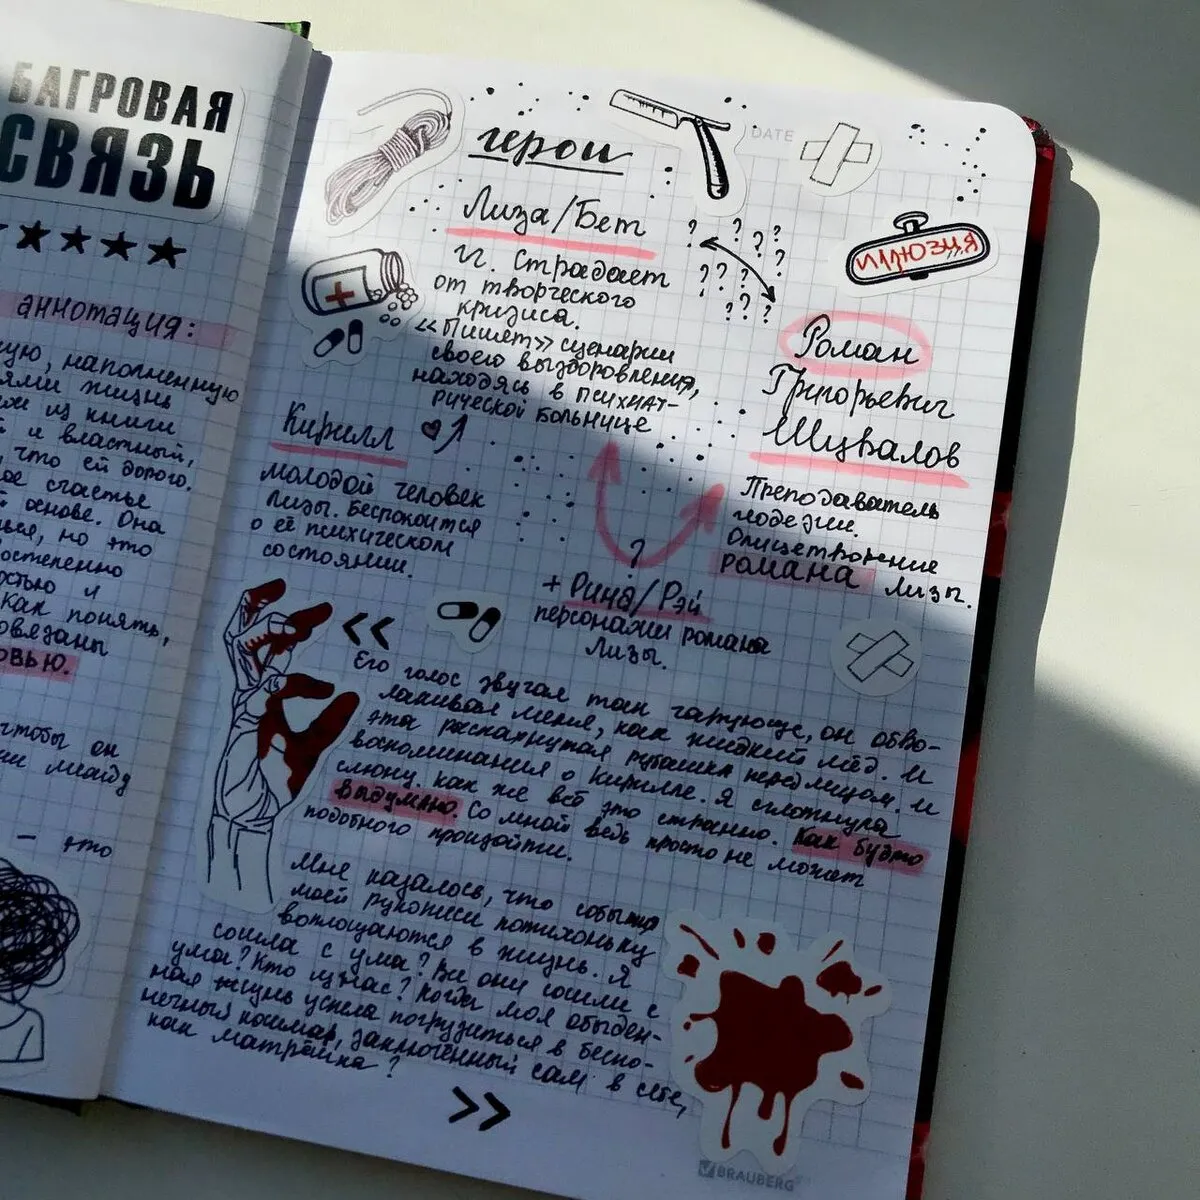 БАГРОВАЯ
СВЯЗЬ
аннотация:
наполненную
жизнь
из книги
и властный,
что ей дорого.
счастье
основе. Она
но это
постепенно
и
Как понять,
связаны
чтобы он
— это
герои
DATE
Лиза/Бет
гг. Страдает
от творческого
кризиса.
«Пишет» сценарии
своего выздоровления,
находясь в психиат-
рической больнице
? ? ? ? ? ? ? ? ? ? ? ? ?
иллюзия
Роман
Григорьевич
Шувалов
Преподаватель
модели.
Олицетворение
романа Лизы.
Кирилл
молодой человек
Лизы. Беспокоится
о её психическом
состоянии.
?
+ Рина/Рэй
персонажи романа
Лизы.
«
Его голос звучал так чарующе, он обво-
лакивал меня, как жидкий лёд. И
эта распахнутая рубашка перед лицом. И
воспоминания о Кирилле. Я сглотнула
слюну. Как же всё это странно. Как будто
выдумано. Со мной ведь просто не может
подобного произойти.
Мне казалось, что события
моей рукописи потихоньку
воплощаются в жизнь. Я
сошла с ума? Все они сошли с
ума? Кто из нас? Когда моя обыден-
ная жизнь успела погрузиться в беско-
нечный кошмар, заключённый сам в себе,
как матрёшка?
»
BRAUBERG